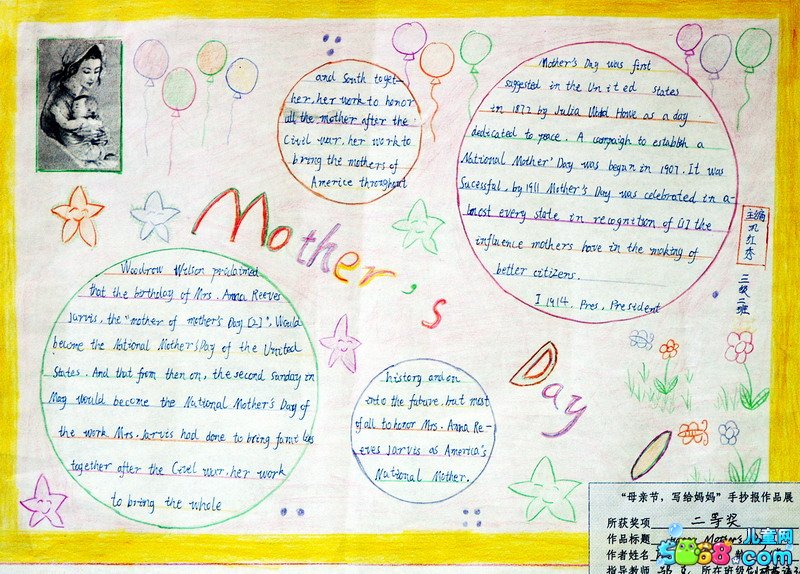 Mother's Day
Mother's Day was first
suggested in the United states
in 1872 by Julia Howe as a day
dedicated to peace. A compaign to establish a
National Mother' Day was began in 1907. It was
Sucessful, by 1911 Mother's Day was celebrated in a-
lmost every state in recognition of [1] the
influence mothers have in the making of
better citizens.
I 1914. Pres. President
Woodrow Welson proclaimed
that the birthday of Mrs. Anna Reeves
Jarvis, the "mother of mother's Day [2]", Would
become the National Mother'sDay of the United
States. And that from then on, the second sunday in
May would become the National Mother's Day of
the work Mrs. Jarvis had done to bring
together after the war. her work
to bring the whole
and South toget-
her. her work to honor
all the mother after the
Civil war. her work to
bring the mothers of
Americe throughout
history and on
into the future. but most
of all to honor Mrs. Anna Re-
eves Jarvis as America's
National Mother.
主编
巩
红
三
二
班
“母亲节，写给妈妈”手抄报作品展
所获奖项 二等奖
作品标题 Mother's
作者姓名
指导教师 所在班级
5068.com
儿童网